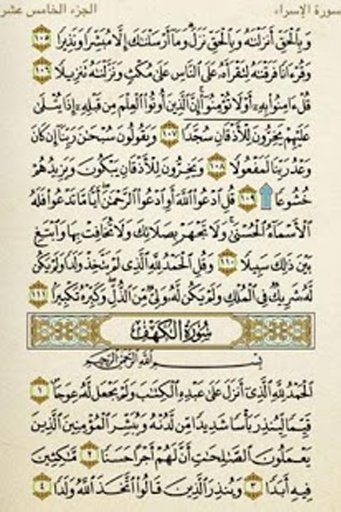 سورة الإسراء الجزء الخامس عشر
وَبِالْحَقِّ أَنزَلْنَاهُ وَبِالْحَقِّ نَزَلَ وَمَا أَرْسَلْنَاكَ إِلَّا مُبَشِّرًا وَنَذِيرًا ١٠٥
وَقُرْآنًا فَرَقْنَاهُ لِتَقْرَأَهُ عَلَى النَّاسِ عَلَى مُكْثٍ وَنَزَّلْنَاهُ تَنزِيلًا ١٠٦
قُلْ آمِنُوا بِهِ أَوْ لَا تُؤْمِنُوا إِنَّ الَّذِينَ أُوتُوا الْعِلْمَ مِن قَبْلِهِ إِذَا يُتْلَى
عَلَيْهِمْ يَخِرُّونَ لِلْأَذْقَانِ سُجَّدًا ١٠٧ وَيَقُولُونَ سُبْحَانَ رَبِّنَا إِن كَانَ
وَعْدُ رَبِّنَا لَمَفْعُولًا ١٠٨ وَيَخِرُّونَ لِلْأَذْقَانِ يَبْكُونَ وَيَزِيدُهُمْ
خُشُوعًا ۩ ١٠٩ قُلِ ادْعُوا اللَّهَ أَوِ ادْعُوا الرَّحْمَنَ أَيًّا مَّا تَدْعُوا فَلَهُ
الْأَسْمَاءُ الْحُسْنَى وَلَا تَجْهَرْ بِصَلَاتِكَ وَلَا تُخَافِتْ بِهَا وَابْتَغِ
بَيْنَ ذَلِكَ سَبِيلًا ١١٠ وَقُلِ الْحَمْدُ لِلَّهِ الَّذِي لَمْ يَتَّخِذْ وَلَدًا وَلَمْ يَكُن
لَّهُ شَرِيكٌ فِي الْمُلْكِ وَلَمْ يَكُن لَّهُ وَلِيٌّ مِّنَ الذُّلِّ وَكَبِّرْهُ تَكْبِيرًا ١١١
سُورَةُ الكَهْفِ
بِسْمِ اللَّهِ الرَّحْمَنِ الرَّحِيمِ
الْحَمْدُ لِلَّهِ الَّذِي أَنزَلَ عَلَى عَبْدِهِ الْكِتَابَ وَلَمْ يَجْعَل لَّهُ عِوَجًا ١
قَيِّمًا لِّيُنذِرَ بَأْسًا شَدِيدًا مِّن لَّدُنْهُ وَيُبَشِّرَ الْمُؤْمِنِينَ الَّذِينَ
يَعْمَلُونَ الصَّالِحَاتِ أَنَّ لَهُمْ أَجْرًا حَسَنًا ٢ مَّاكِثِينَ
فِيهِ أَبَدًا ٣ وَيُنذِرَ الَّذِينَ قَالُوا اتَّخَذَ اللَّهُ وَلَدًا ٤